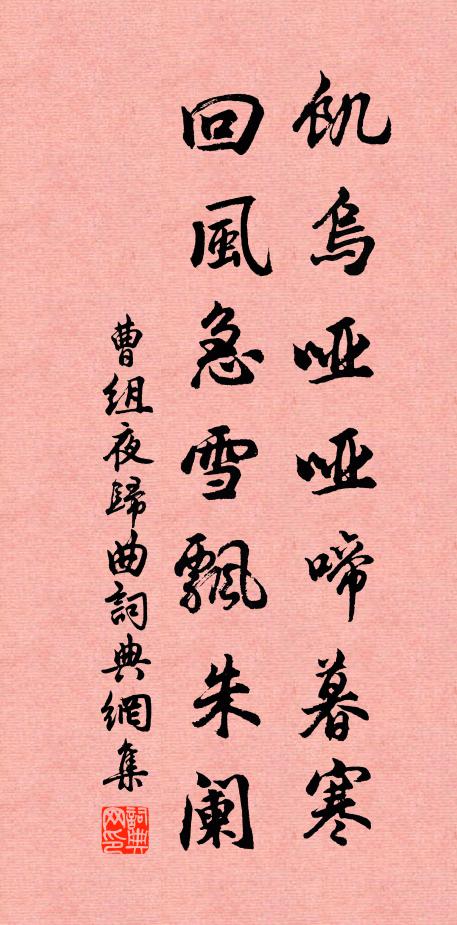 飢烏啞啞啼暮寒
回風急雪飄朱阑
曹组夜歸曲詞典網集
詞典网印